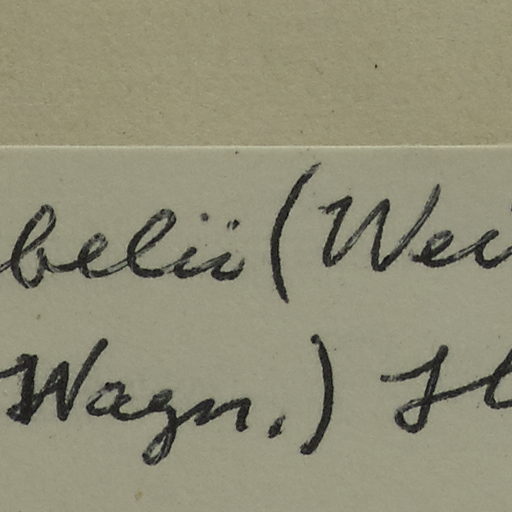 belii (Wei
Wagn.) H